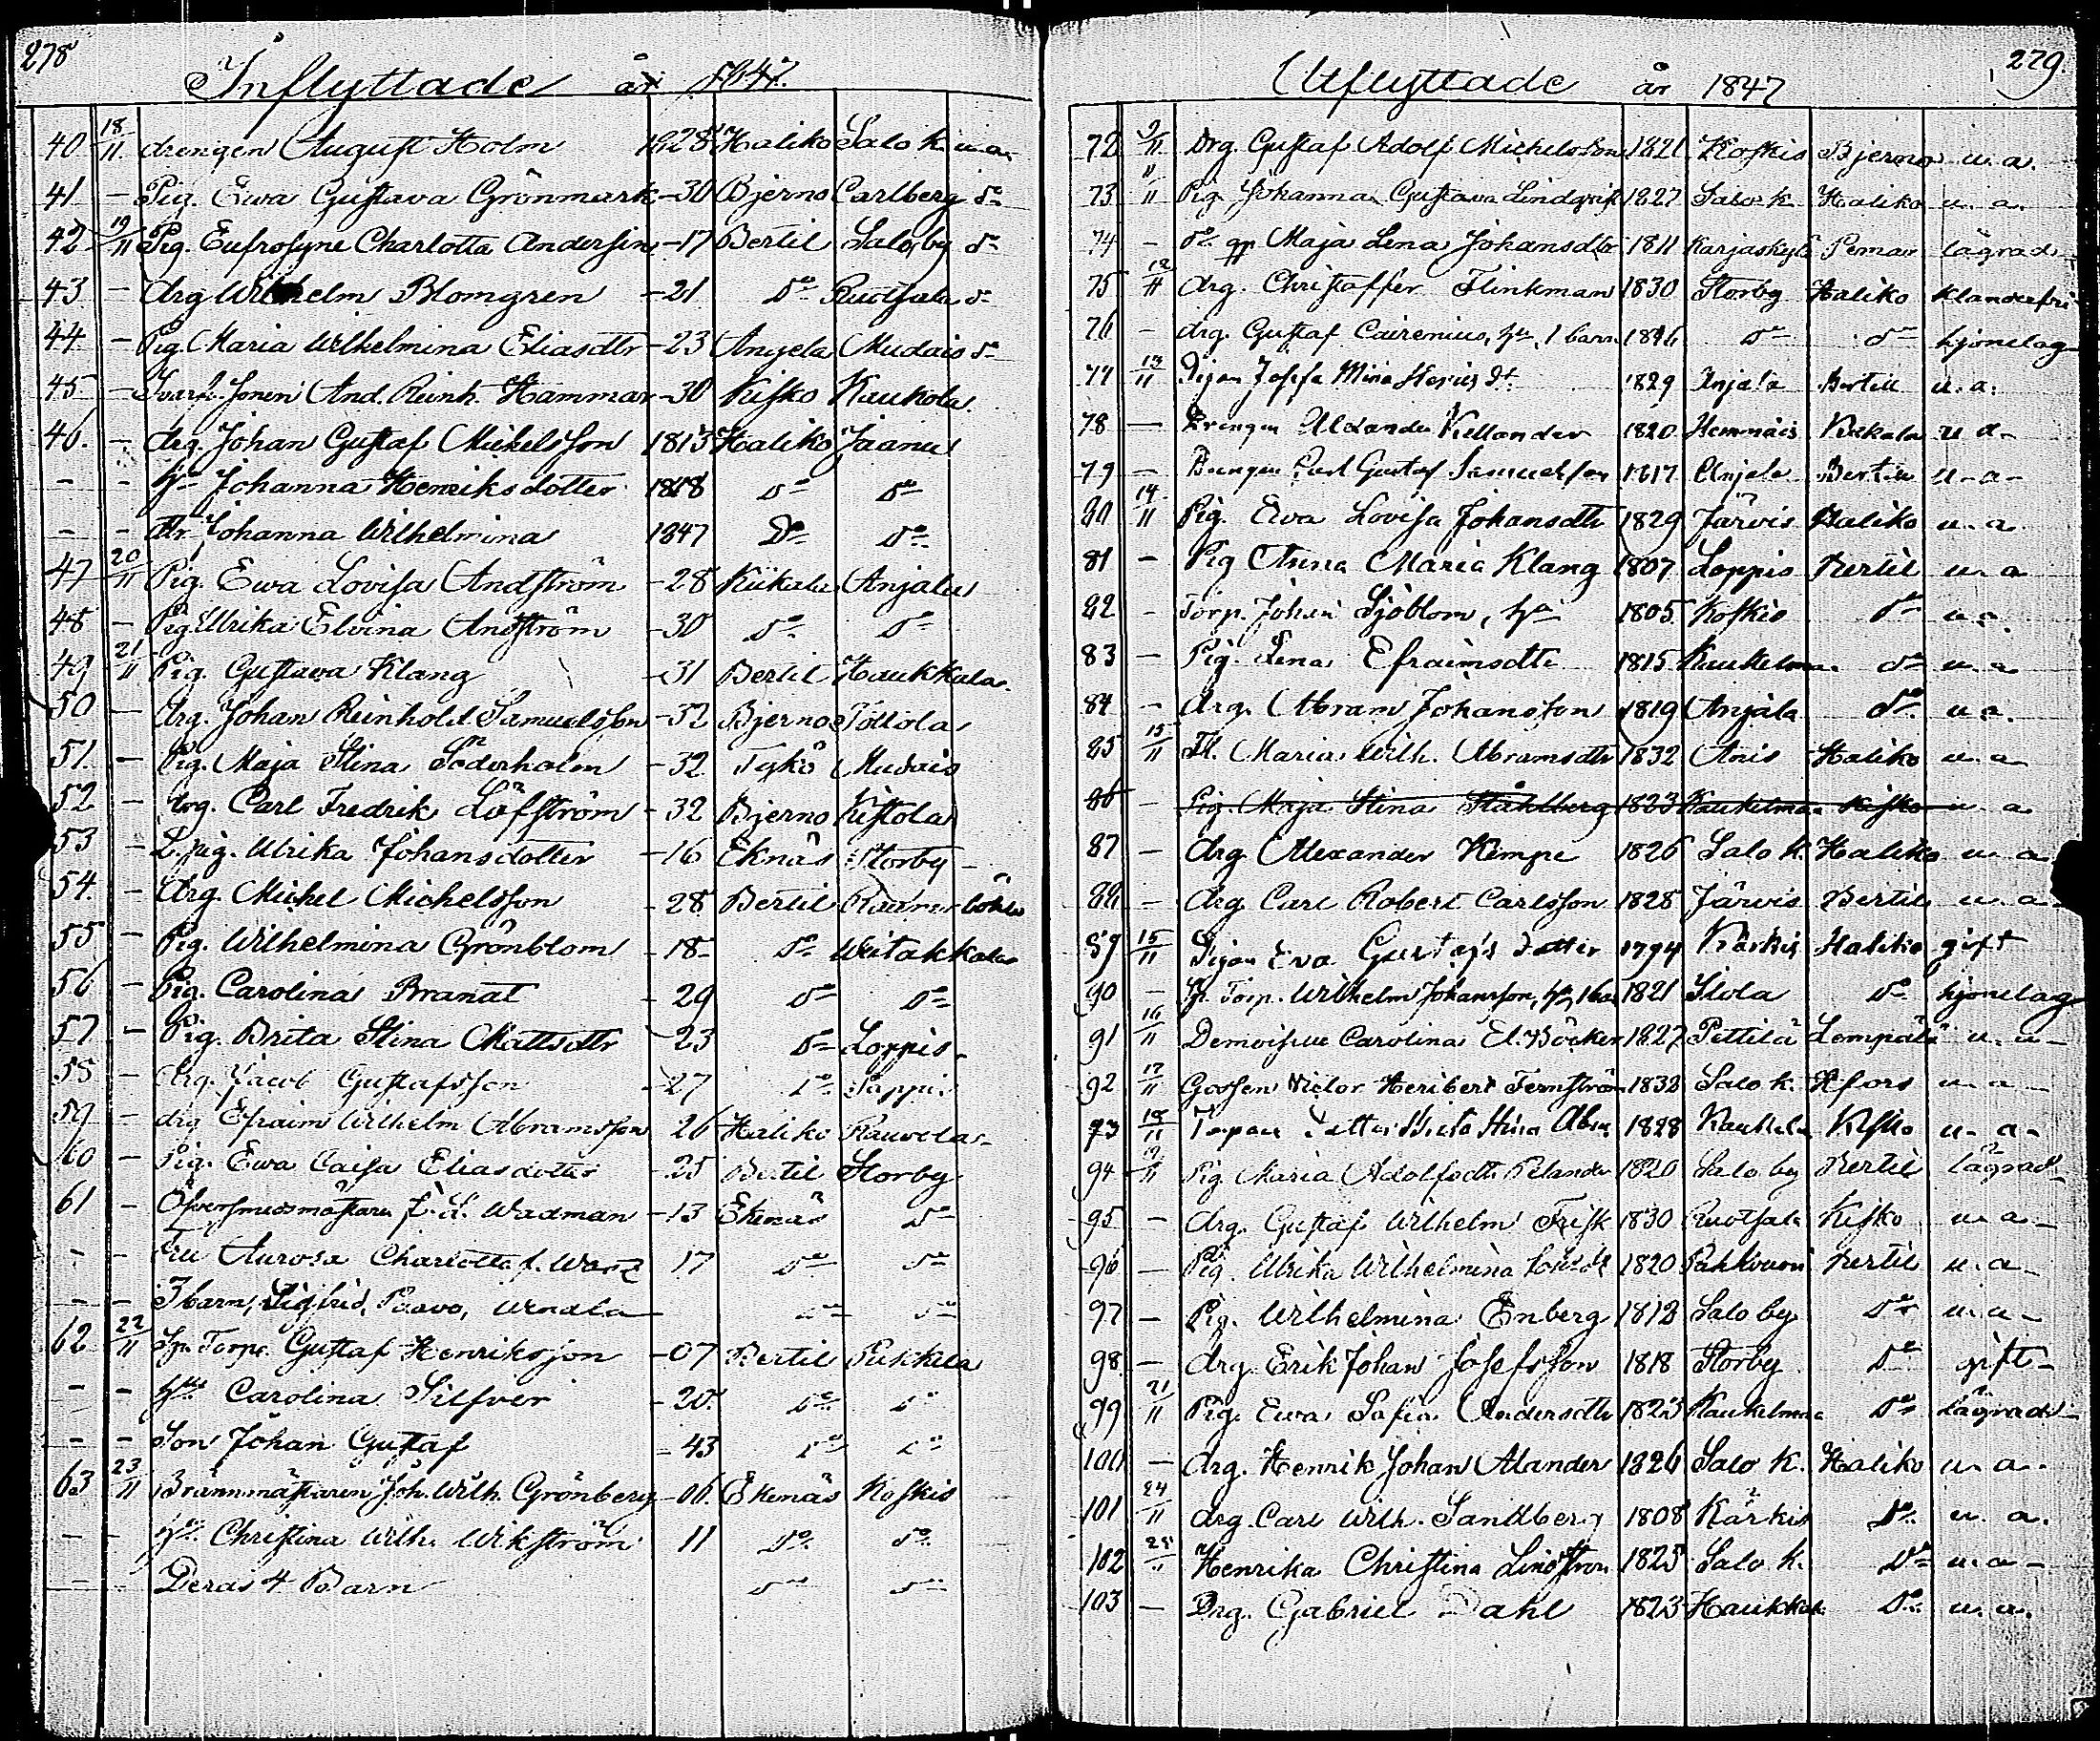 278
Inflyttade år 1847.
40 18/11 drengen August Holm 1828 Haliko Salo k. u.a.
41 — Pig. Ewa Gustava Grönmark -30 Bjerno Carlberg do
42 19/11 Pig. Eufrosyne Charlotta Andersin -17 Bertil Salo by do
43 — drg Wilhelm Blomgren -21 do Ruotsala do
44 — Pig. Maria Wilhelmina Eliasdtr -23 Angela Mudais do
45 — And. Reinh. Hammar -30 Kisko Kaukola
46. — drg. Johan Gustaf Mickelsson 1813 Haliko Jaanu
- - hu Johanna Henriksdotter 1818 do do
- - dtr Johanna Wilhelmina 1847 Do do
47 20/11 Pig. Ewa Lovisa Andström -28 Kiikala Anjala
48 — Pig. Ulrika Elvina Andström -30 do do
49 21/11 Pig. Gustava Klang -31 Bertil Haukkala
50 — drg. Johan Reinhold Samuelsson -32 Bjerno Tottola
51. — Pig. Maja Stina Söderholm -32 Tykö Mudais
52 — drg. Carl Fredrik Löfström -32 Bjerno Kistola
53 — L. pig. Ulrika Johansdotter -16 Eknäs Storby
54. — drg. Michel Michelsson -28 Bertil
55 — Pig. Wilhelmina Grönblom -18- do Weitakkala
56 — Pig. Carolina Branat -29 do do
57 — Pig. Brita Stina Mattsdtr -23 do Loppis
58 — drg. Jacob Gustafsson -27 do
59 — drg Efraim Wilhelm Abramsson 26 Haliko Rauvola
60 — Pig. Ewa Caisa Eliasdotter -25 Bertil Storby
61 — Öfversmedsmästaren Wadman -13 Ekenäs do
- - Fru Aurora Charlotta f. 17 do do
- - 3 barn, Sigfrid, Paavo, Wendla do do
62 22/11 Sp. Torp. Gustaf Henriksson -07 Bertil Pukkila
- - hu Carolina Silfver -20. do do
- - Son Johan Gustaf -43 do do
63 23/11 Brännmästaren Joh. Wilh. Grönberg -06. Ekenäs Koskis
- - hu Christina Wilh. Wikström 11 do do
- Deras 4 Barn do do
279.
Utflyttade år 1847
72 9/11 Drg. Gustaf Adolf Michelsson 1821 Koskis Bjerno u. a.
73 Pig. Johanna Gustava Lindqvist 1827 Salo k. Haliko u. a.
74 — do Maja Lena Johansdtr 1811 Karjaskylä Pemar lägrad
75 12/11 drg. Christaffer Flinkman 1830 Storby Haliko klanderfri
76 — drg. Gustaf Cairenius, hu, 1 barn 1816 do do hjonelag
77 13/11 Pigan Josefa Mina 1829 Anjala Bertil u. a.
78 — Drengen Alexander Kellander 1820 Hemmais u a-
79 — Drengen Carl Gustaf Samuelsson 1817 Anjela Bertil u-a-
80 14/11 Pig. Ewa Lovisa Johansdtr 1829 Järvis Haliko u. a
81 — Pig Anna Maria Klang 1807 Loppis Bertil u. a
82 - Torp. Johan Sjöblom, hu 1805 Koskis do u. a.
83 — Pig. Lena Efraimsdtr 1815 Kaukelmaa do u. a
84 — drg. Abram Johansson 1819 Anjala do u. a.
85 15/11 Fl. Maria Wilh. Abramsdtr 1832 Anis Haliko u. a
86 — Pig. Maja Stina Ståhlberg 1823 Kaukelmaa Kisko u a
87 — drg. Alexander Kempe 1826 Salo k. Haliko u. a
88 — drg Carl Robert Carlsson 1828 Järvis Bertil u. a
89 15/11 Pigan Eva Gustafs dotter 1794 Kärkis Haliko gift
90 — Sp. Torp. Wilhelm Johansson, hu, 1 bar 1821 do hjonelag
91 16/11 Demoiselle Carolina El. Böcker 1827 Pettilä Lempälä u. a-
92 17/11 Gossen Victor Heribert Fernström 1832 Salo k. Hfors u. a-
93 18/11 Torpare dotter Stina 1828 Kisko u. a-
94 19/11 Pig. Maria Adolfsdtr 1820 Salo by Bertil lägrad
95 — drg. Gustaf Wilhelm Frisk 1830 Ruotsala Kisko u. a-
96 — Pig. Ulrika Wilhelmina 1820 Pahkvuori Bertil u. a-
97 — Pig. Wilhelmina Enberg 1812 Salo by do u. a-
98 — drg. Erik Johan Josefsson 1818 Storby do gift-
99 21/11 Pig. Ewa Safia Andersdtr 1823 Kaukelmaa do lägrad-
100 — drg. Henrik Johan Alander 1826 Salo k. Haliko u. a.
101 24/11 drg. Carl Wilh. Sandberg 1808 Kärkis do u. a.
102 25/11 Henrika Christina Lindstrom 1825 Salo k. do u. a-
103 — Drg. Gabriel Dahl 1823 Haukkala do u. a.